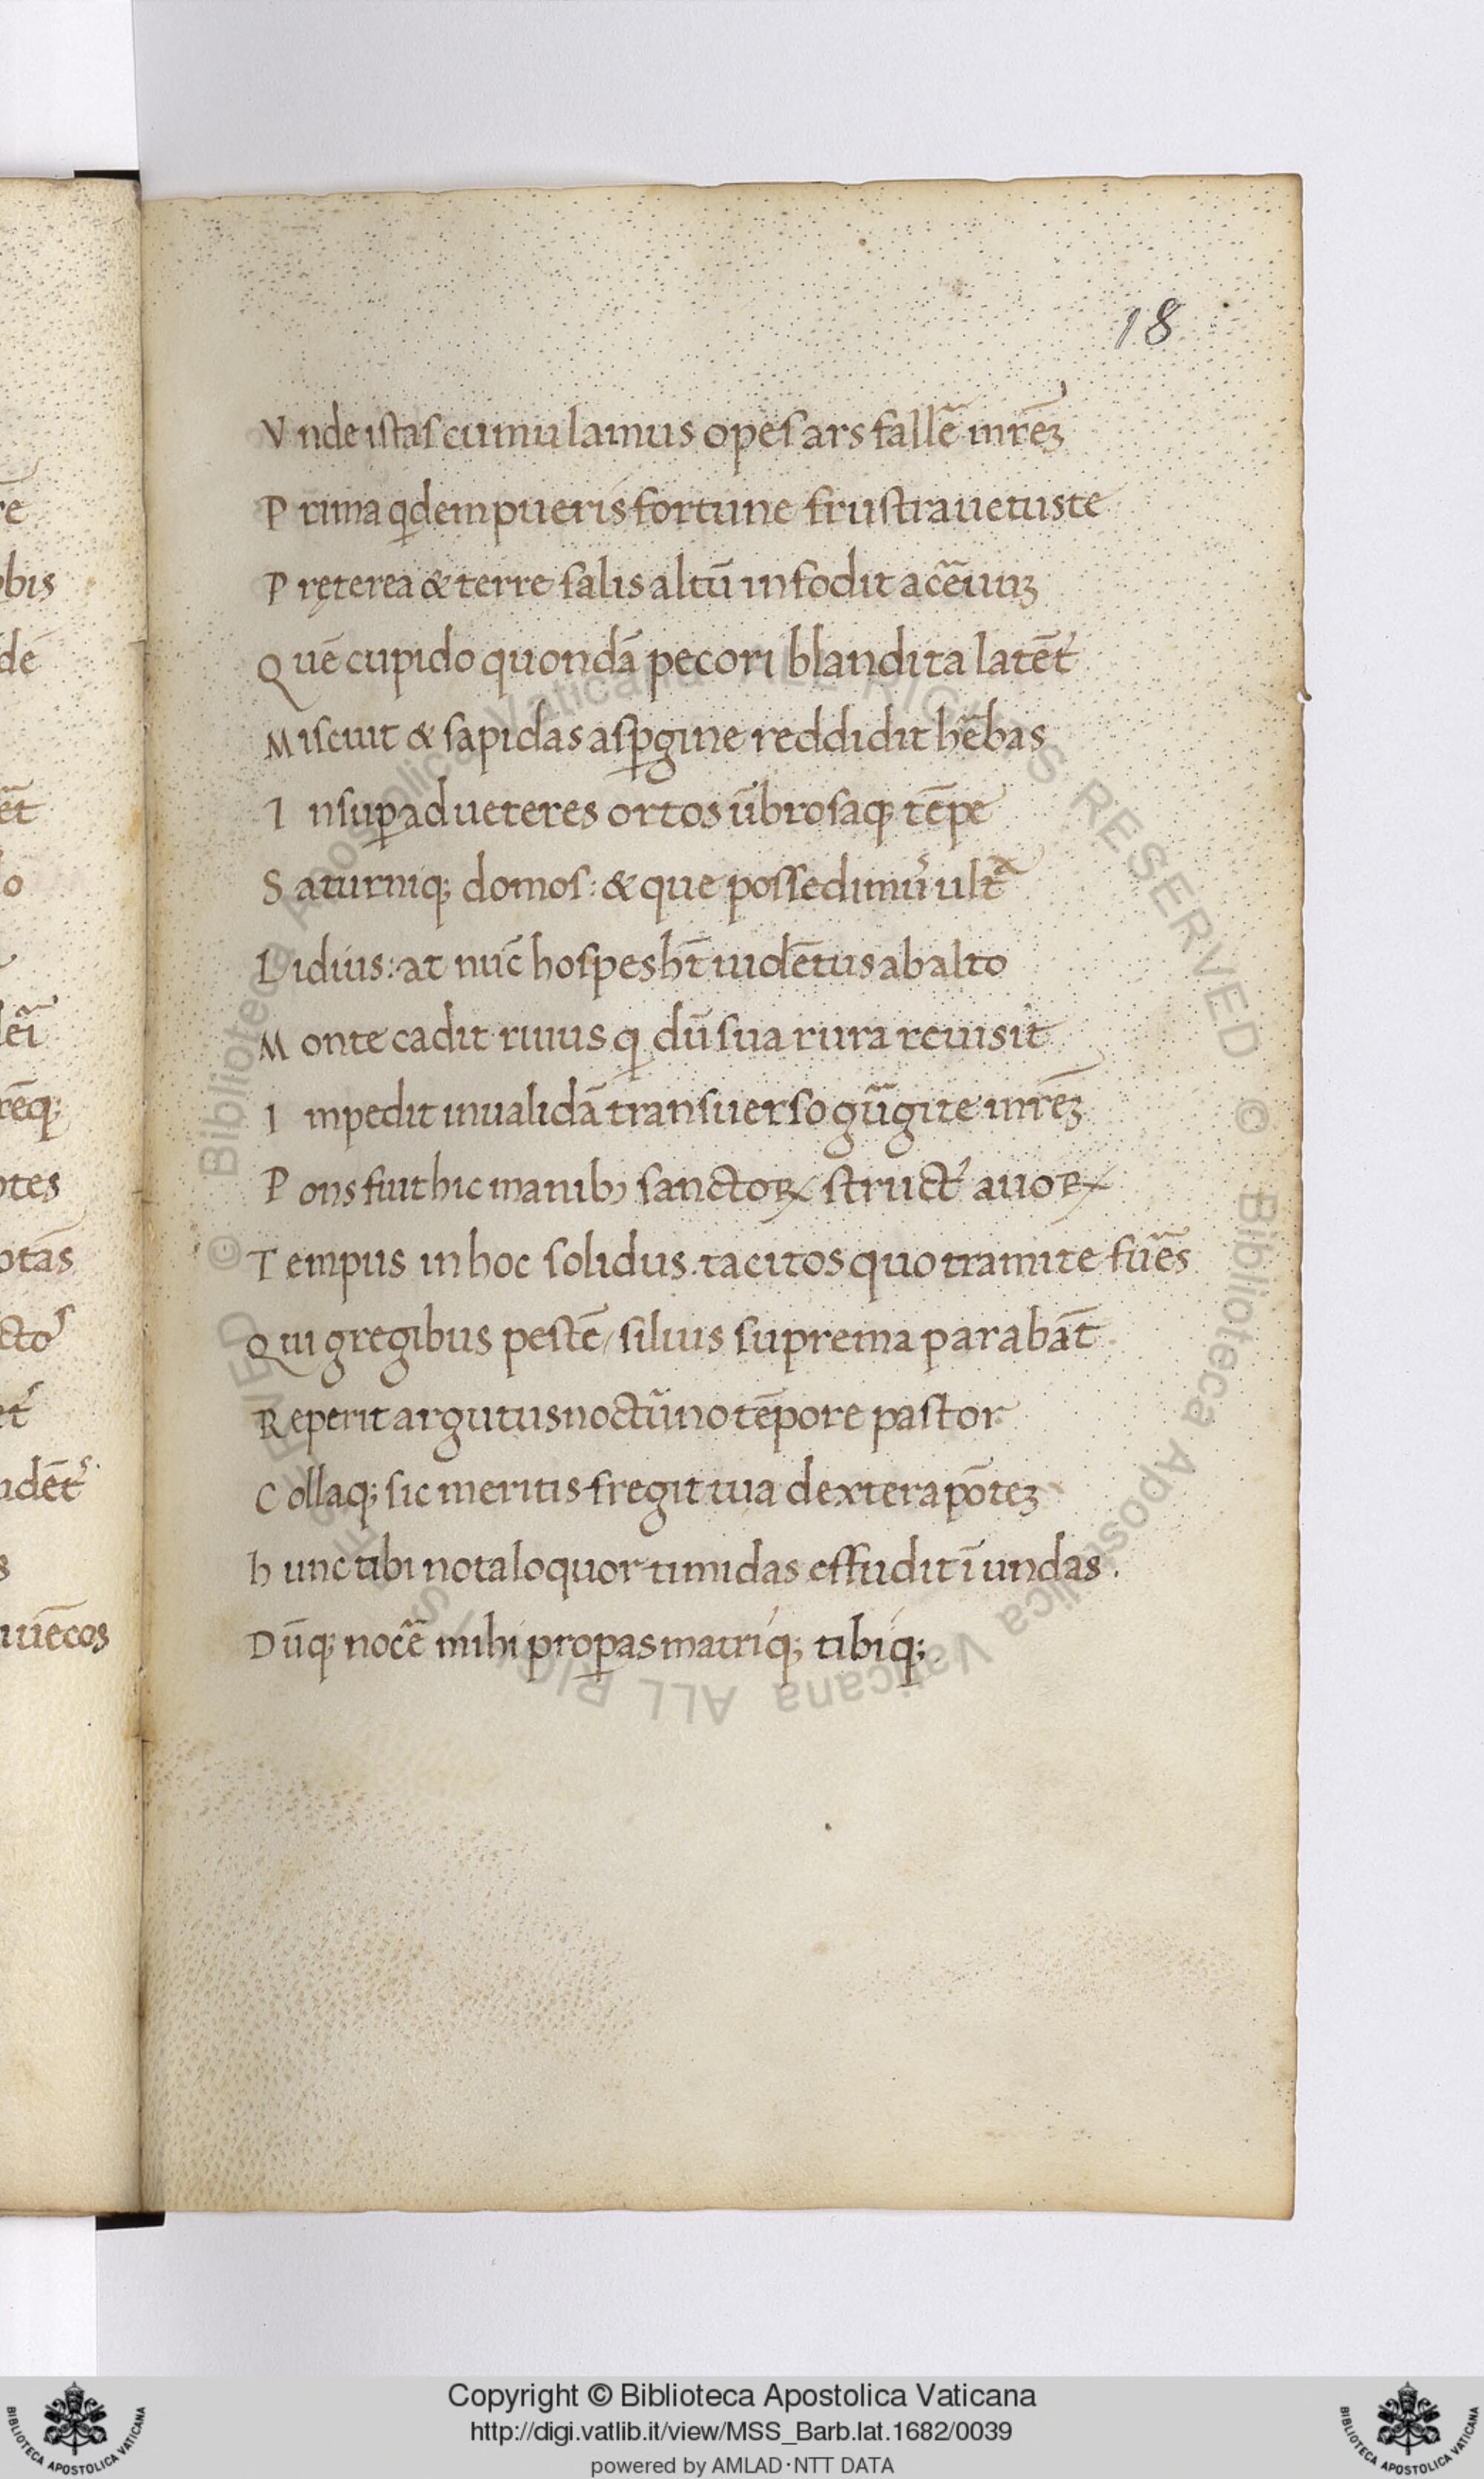 18
Vnde istas cumulamus opes ars fallẽ inrẽꝫ
Prima qͥdem pueris fortune frustra uetuste
Pręterea & terre salis altũ infodit acẽuuꝫ
Quẽ cupido quondã pecori blandita latẽt᷑
Miscuit & sapidas asꝑgine reddidit hẽbas
Insuꝑ ad ueteres ortos ũbrosaqꝫ tẽpe
Saturniqꝫ domos: & que possedimꝰ ult᷑ᷓ
Lidius: at nũc hospes hт̃ uidẽtus ab alto
Monte cadit riuus qͥ dũ sua rura reuisit
Impedit inualidã transuerso gũgite inrẽꝫ
Pons fuit hic manibꝫ sanctoꝝ structꝰ auoꝝ
Tempus in hoc solidus. tacitos quo tramite fũes
Qui gregibus pestẽ/ siluis suprema parabãt
Reperit argutus noctũno tẽpore pastor
Collaqꝫ sic meritis fregit tua dextera põteꝫ
hunc tibi nota loquor timidas effudit ĩ undas.
Dũqꝫ nocẽ mihi proꝑas matriqꝫ tibiqꝫ.
re
obis
dé
ẽt
lo
rẽqꝫ
otes
otãs
s
uuẽcos
© Biblioteca Apostolica Vaticana ALL RIGHTS RESERVED © Biblioteca Apostolica Vaticana ALL RIGHTS RESERVED
Copyright © Biblioteca Apostolica Vaticana
http://digi.vatlib.it/view/MSS_Barb.lat.1682/0039
powered by AMLAD·NTT DATA
BIBLIOTECA APOSTOLICA VATICANA
BIBLIOTECA APOSTOLICA VATICANA